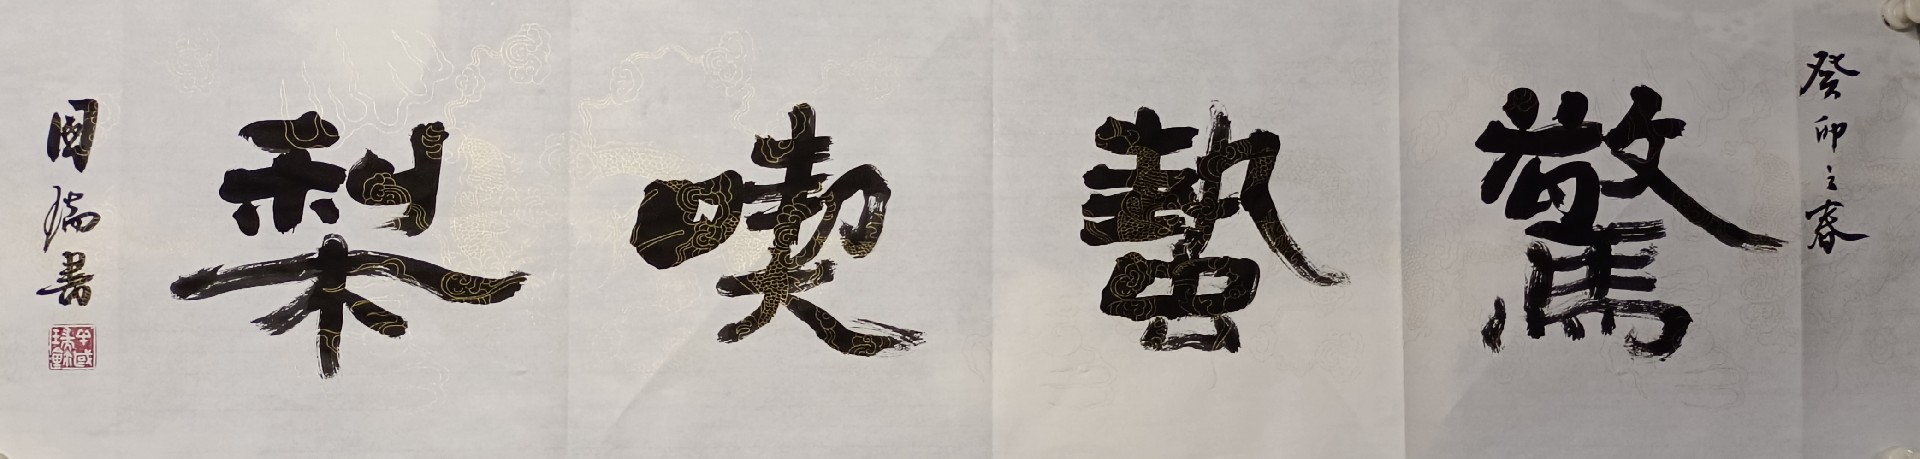 癸卯之春
驚蟄喫梨
國瑞書